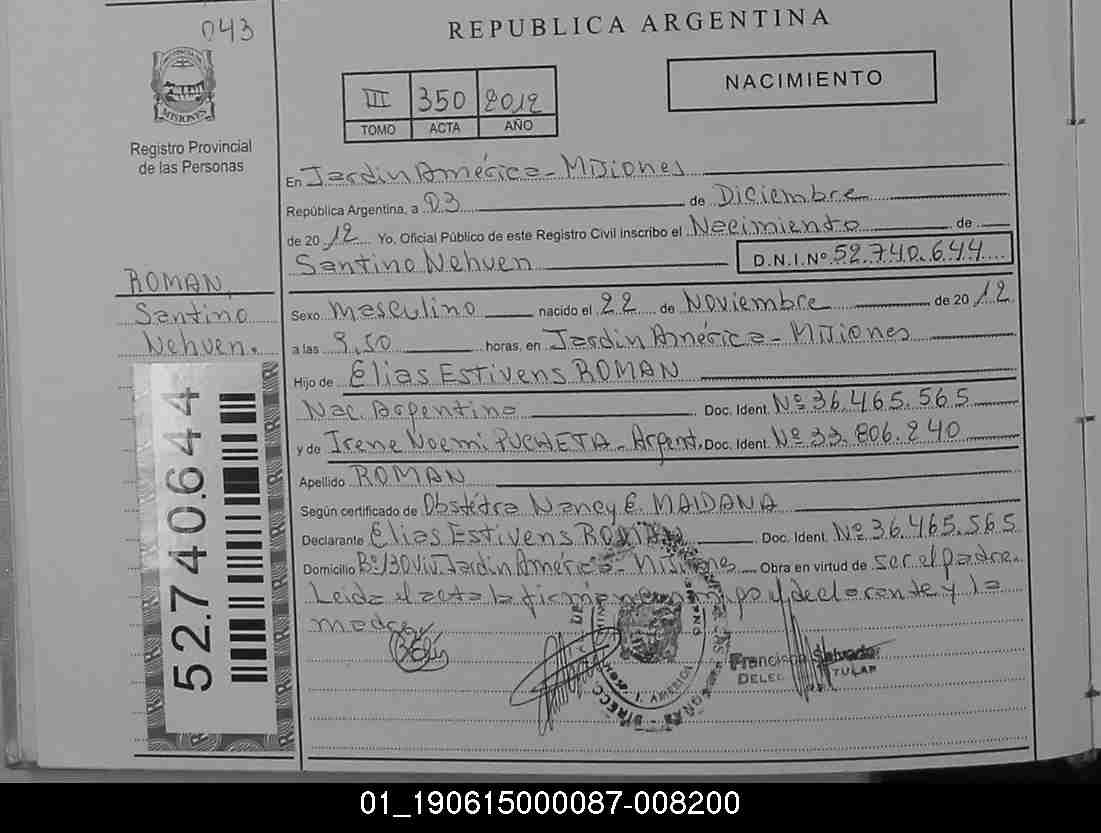 043
REPUBLICA ARGENTINA
PROVINCIA DE
MISIONES
Registro Provincial
de las Personas
III 350 2012
TOMO ACTA AÑO
NACIMIENTO
En Jardin América - Misiones
República Argentina, a 03 de Diciembre
de 2012 Yo. Oficial Público de este Registro Civil inscribo el Nacimiento de
Santino Nehuen D.N.I.Nº 52.740.644
ROMAN,
Santino
Nehuen.
Sexo masculino nacido el 22 de Noviembre de 2012
a las 9,50 horas, en Jardin América - Misiones
Hijo de Elias Estivens ROMAN
Nac. Argentino Doc. Ident. Nº 36.465.565
y de Irene Noemi PUCHETA - Argent. Doc. Ident. Nº 33.806.240
Apellido ROMAN
Según certificado de Obstétra Nancy E. MAIDANA
Declarante Elias Estivens ROMAN Doc. Ident. Nº 36.465.565
Domicilio Bº 130 Viv. Jardin América - Misiones Obra en virtud de ser el padre.
Leida el acta la firman conmigo el declarante y la
madre.
52.740.644
Francisco Salvador
DELEG TITULAR
AMERICA
01_190615000087-008200